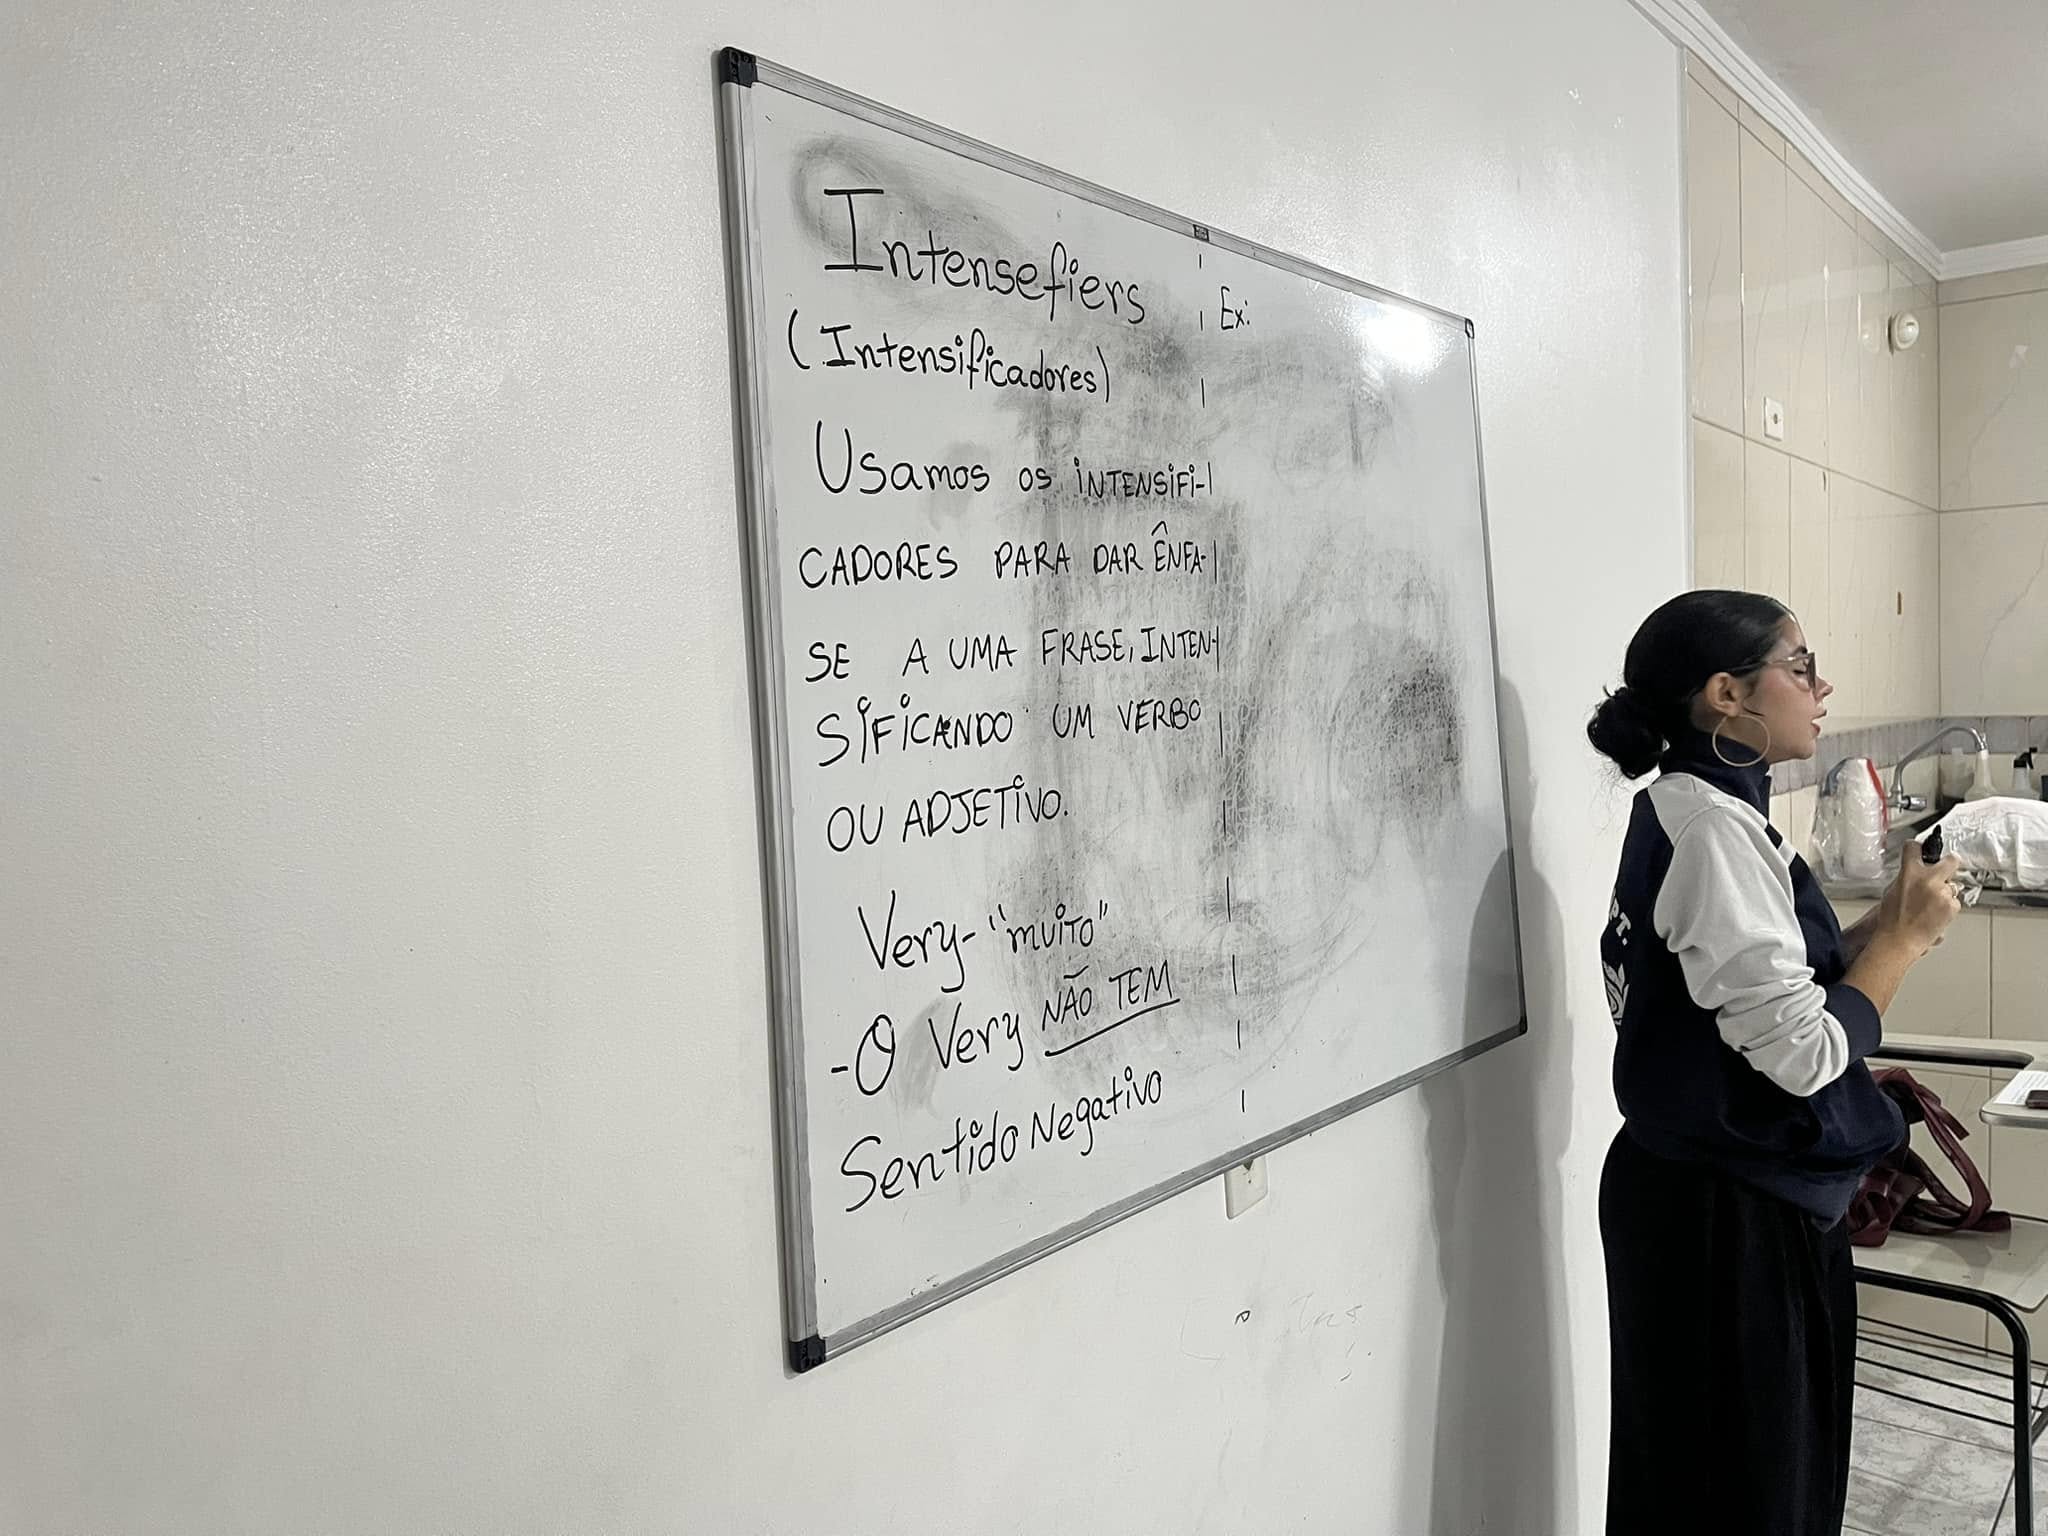 Intensefiers
(Intensificadores)
Usamos os iNTENSiFi-
CADORES PARA DAR ÊNFA-
SE A UMA FRASE, INTEN-
SiFiCANDO UM VERBO
OU ADJETiVO.
Very - "muito"
- O Very NÃO TEM
Sentido Negativo
Ex:
PT.